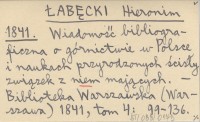 ŁABĘCKI Hieronim
1841. Wiadomość bibliogra-
ficzna o górnictwie w Polsce
i naukach przyrodzonych ścisły
związek z niem mających. –
Biblioteka Warszawska (War-
szawa) 1841, tom 4: 99-136.